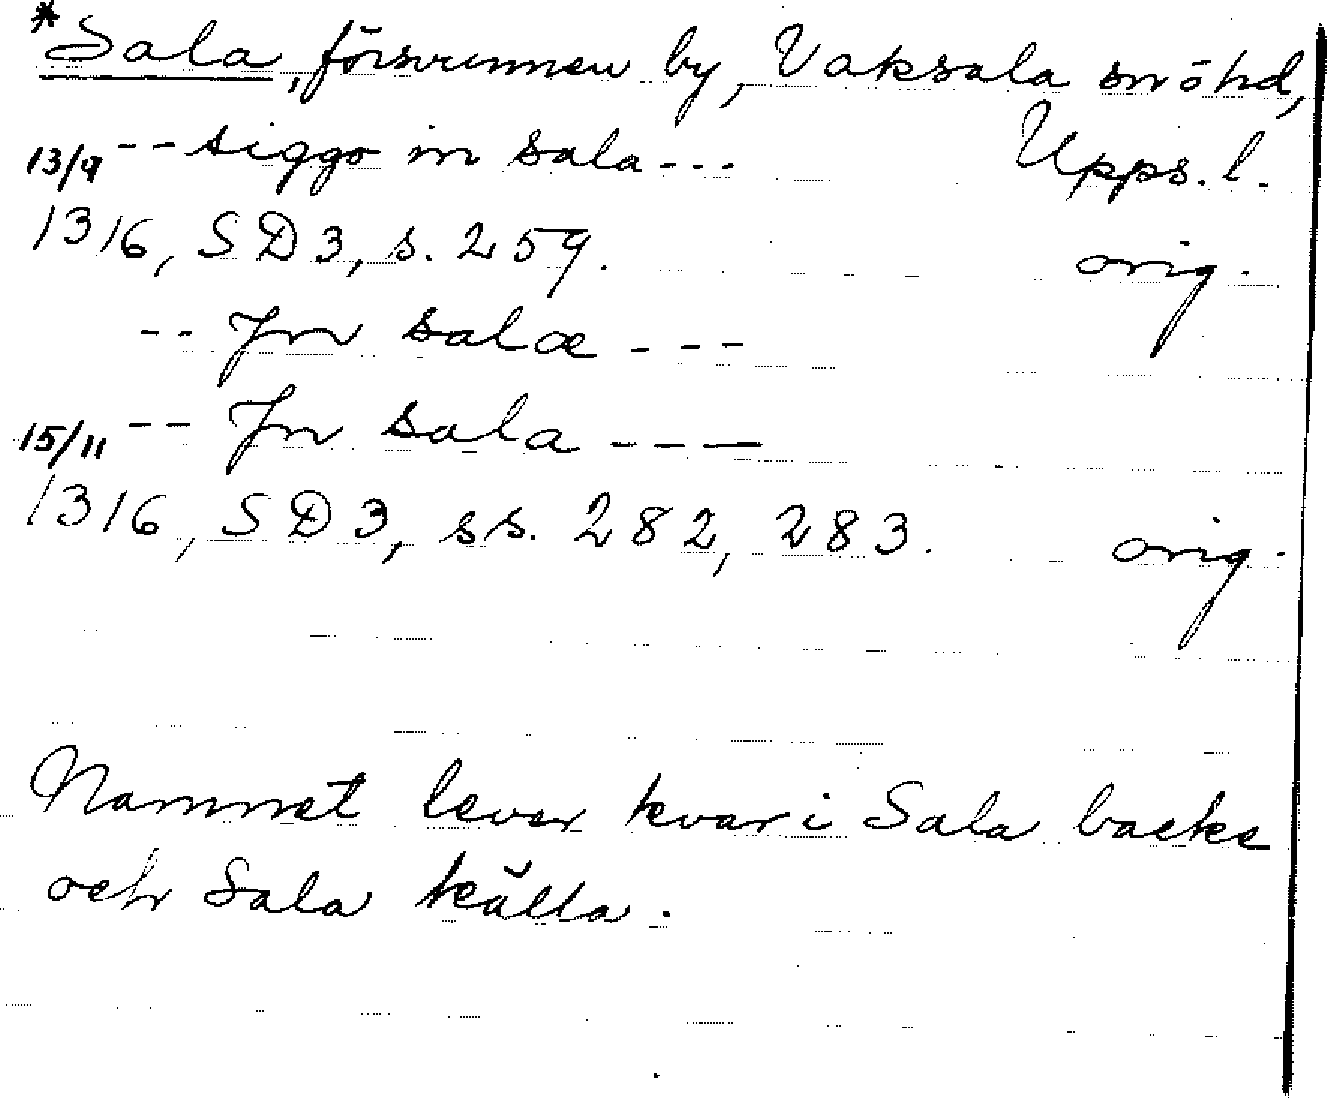 *Sala, försvunnen by, Vaksala sn o hd,
Upps. l.
13/9 -- siggo in sala ---
1316, SD3, s. 259. orig.
-- Jn salæ ---
15/11 -- Jn sala ---
1316, SD3, ss. 282, 283. orig.
Namnet lever kvar i Sala backe
och Sala källa.